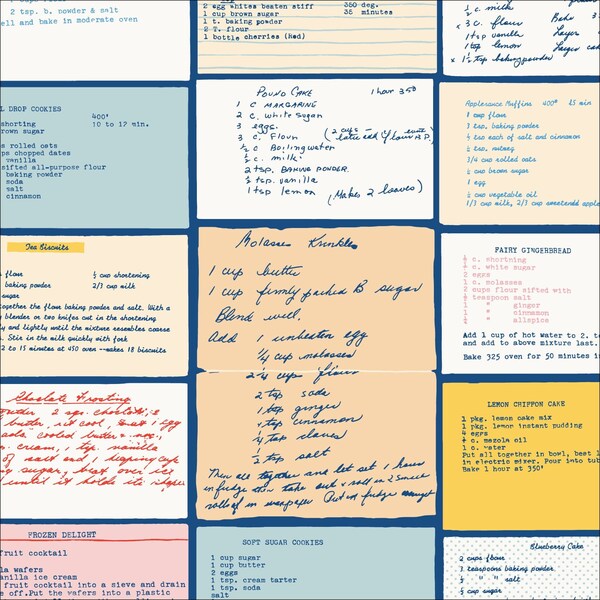 2 tsp. b. powder & salt
ell and bake in moderate oven
2 egg whites beaten stiff 350 deg.
1 cup brown sugar 35 minutes
1 t. baking powder
2 T. flour
1 bottle cherries (Red)
½ c. milk
3 c. flour Bake
1 tsp vanilla Layer
1 tsp lemon Large cake
1½ tsp baking powder
L DROP COOKIES
400°
shorting 10 to 12 min.
rown sugar
s rolled oats
ps chopped dates
vanilla
sifted all-purpose flour
baking powder
soda
salt
cinnamon
POUND CAKE 1 hour 350
1 C MARGARINE
2 C. white sugar
3 eggs.
3 C. Flour
½ c Boiling water
½ c. milk
2 tsp. BAKING POWDER
1½ tsp. vanilla
1 tsp lemon (Makes 2 loaves)
Applesauce Muffins 400° 25 min
1 cup flour
3 tsp. baking powder
½ tsp each of salt and cinnamon
½ tsp. nutmeg
3/4 cup rolled oats
½ cup brown sugar
1 egg
½ cup vegetable oil
1/3 cup milk, 2/3 cup sweetened apple
Tea Biscuits
flour ½ cup shortening
baking powder 2/3 cup milk
sugar
ogether the flour baking powder and salt. With a
blender or two knives cut in the shortening
y and lightly until the mixture resembles coarse
. Stir in the milk quickly with fork
2 to 15 minutes at 450 oven --makes 18 biscuits
Molasses Krinkles
1 cup butter
1 cup firmly packed B sugar
Blend well.
Add 1 unbeaten egg
¼ cup molasses
2¼ cup flour
2 tsp soda
1 tsp ginger
1 tsp cinnamon
½ tsp cloves
½ tsp salt
Then all together and let set 1 hour
in fridge then take out & roll in 2 small
rolls in waxpaper Put in fridge
FAIRY GINGERBREAD
½ c. shortning
½ c. white sugar
2 eggs
1 c. molasses
2 cups flour sifted with
½ teaspoon salt
" ginger
" cinnamon
" allspice
Add 1 cup of hot water to 2. t
and add to above mixture last.
Bake 325 oven for 50 minutes i
Chocolate Frosting
butter, 2 sqs. chocolate,
butter, set cool, beat 1 egg
add cooled butter & choc.,
cream, 1 tsp. vanilla
of salt and 1 heaping cup
sugar, beat over ice
until it holds its shape
LEMON CHIFFON CAKE
1 pkg. lemon cake mix
1 pkg. lemon instant pudding
4 eggs
½ c. mazola oil
1 c. water
Put all together in bowl, beat 1
in electric mixer. Pour into tub
Bake 1 hour at 350'
FROZEN DELIGHT
fruit cocktail
la wafers
anilla ice cream
fruit cocktail into a sieve and drain
e off.Put the wafers into a plastic
SOFT SUGAR COOKIES
1 cup sugar
1 cup butter
2 eggs
1 tsp. cream tarter
1 tsp. soda
salt
Blueberry Cake
2 cups flour
2 teaspoons baking powder
½ " " salt
½ cup sugar